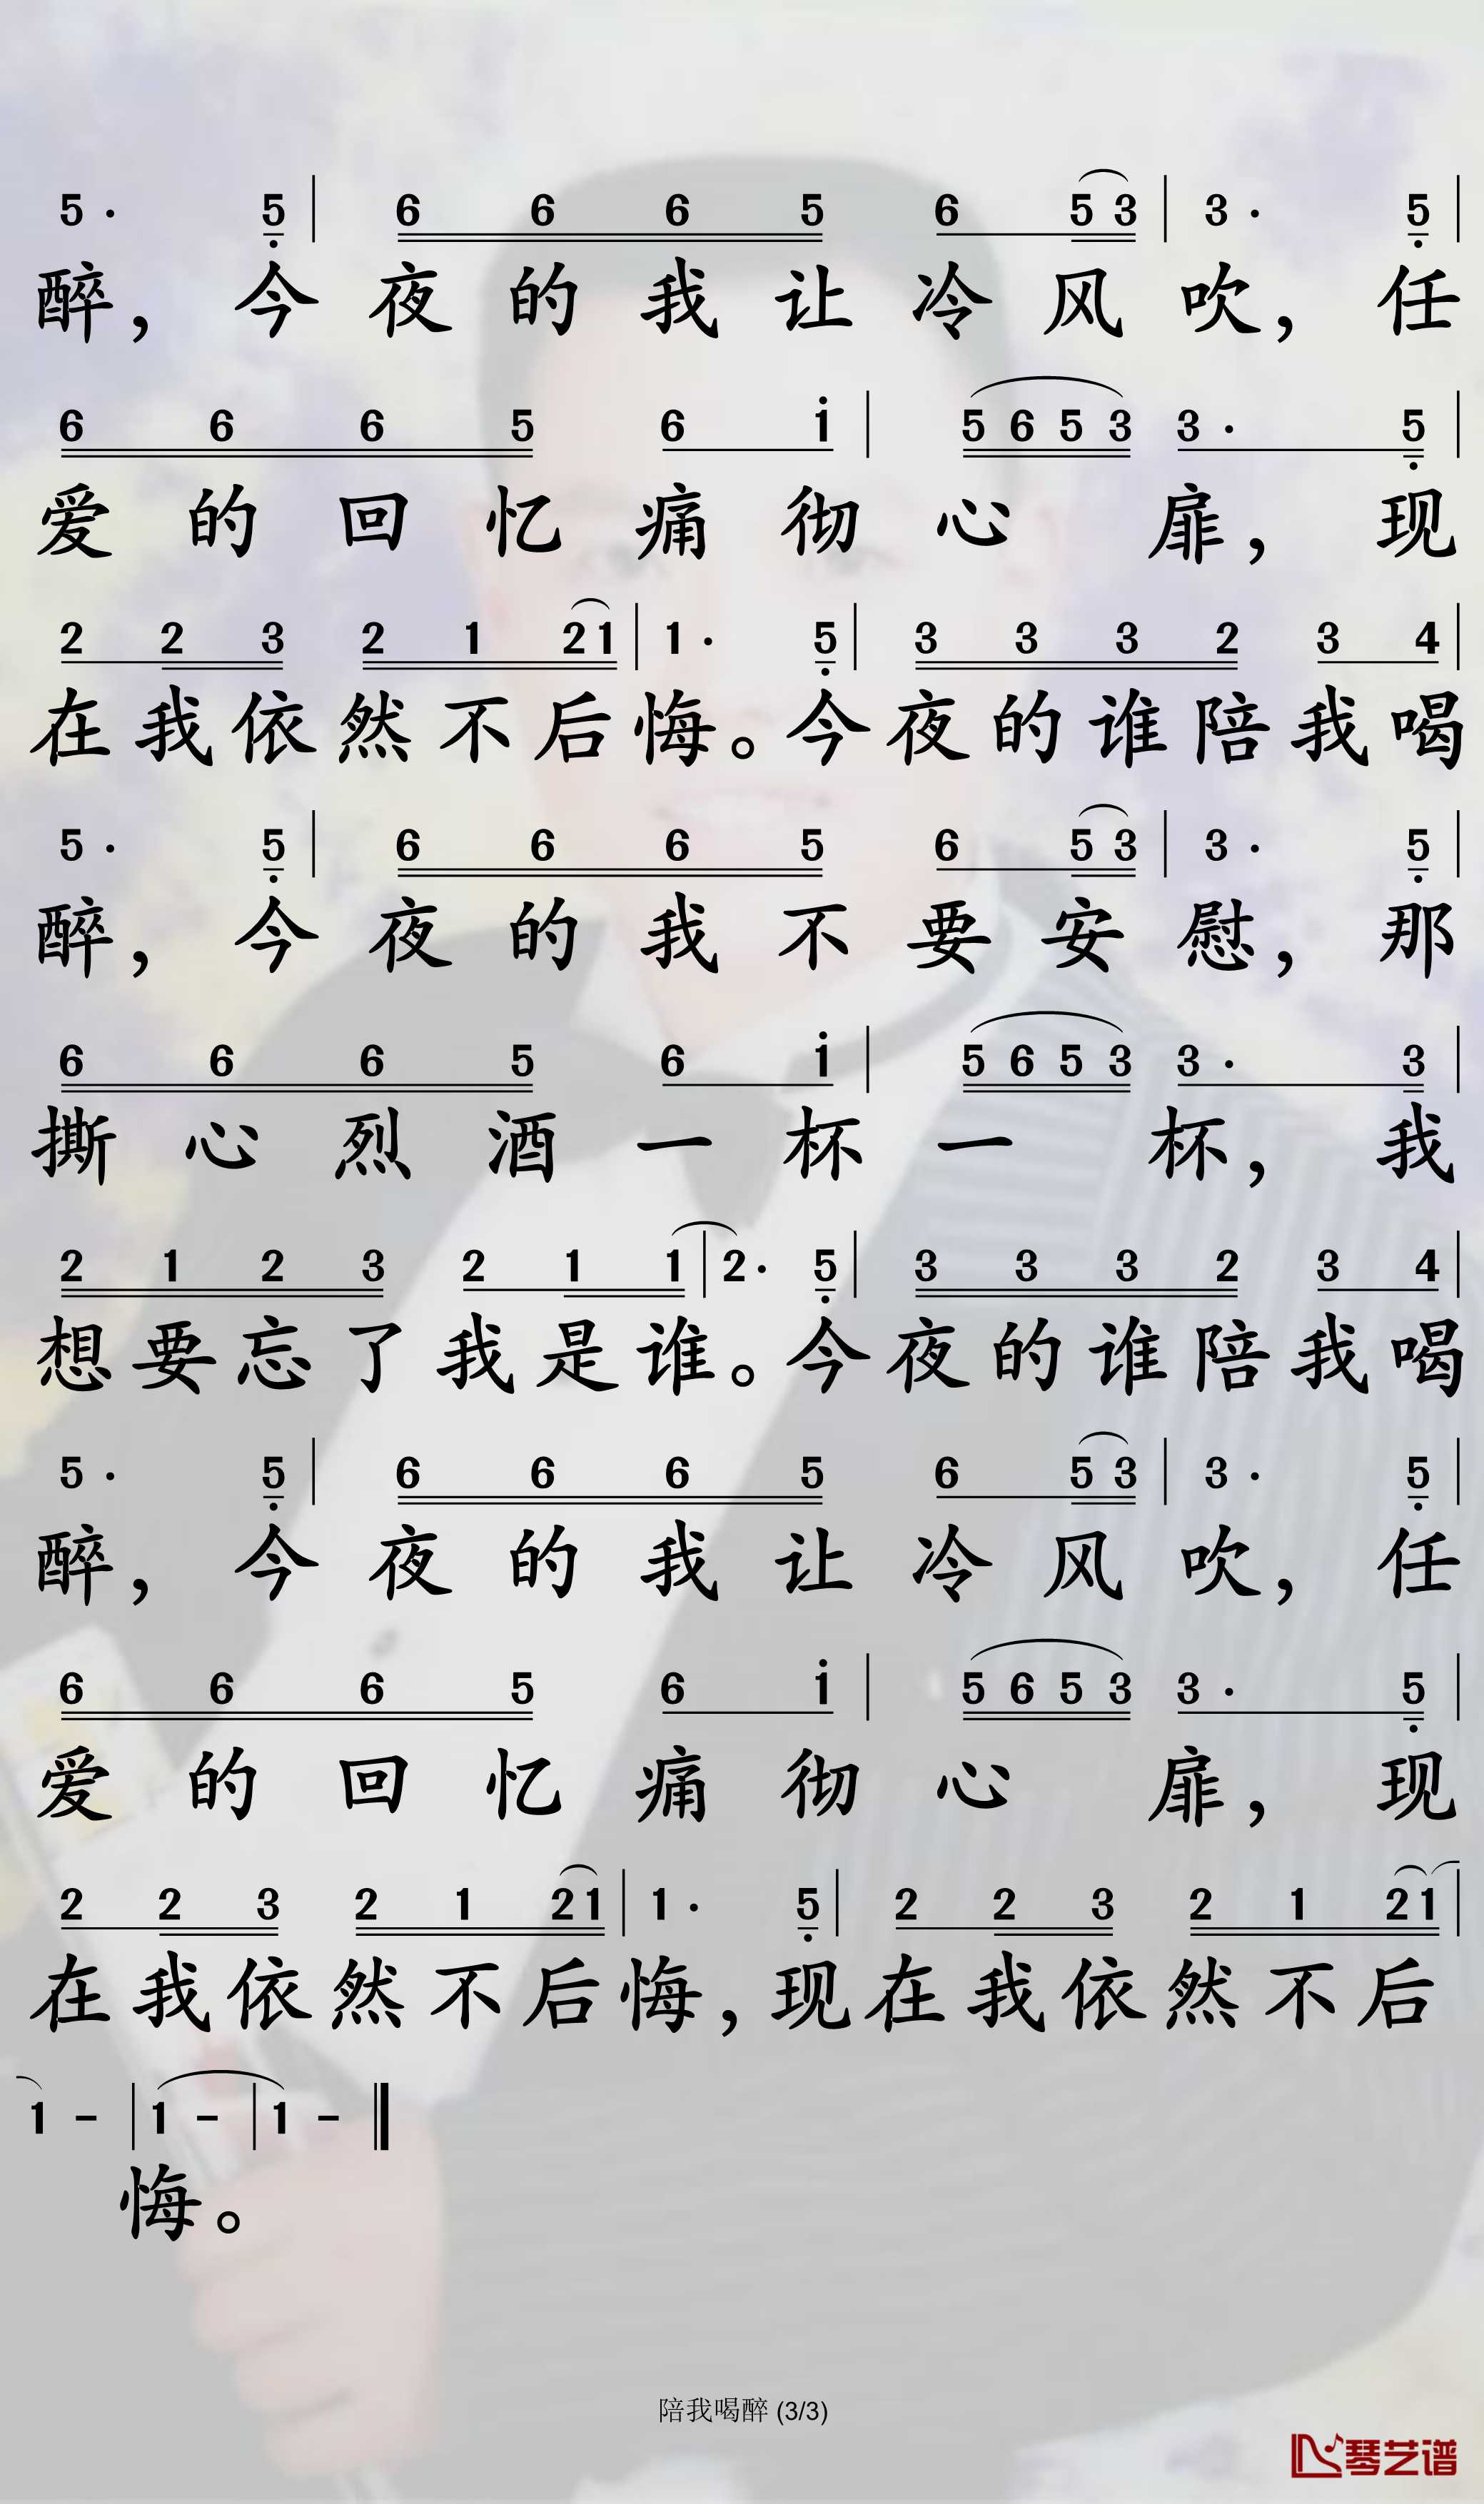 5· 5 | 6 6 6 5 6 5 3 | 3· 5 |
醉，今夜的我让冷风吹，任
6 6 6 5 6 i | 5 6 5 3 3· 5 |
爱的回忆痛彻心扉，现
2 2 3 2 1 2 1 | 1· 5 | 3 3 3 2 3 4 |
在我依然不后悔。今夜的谁陪我喝
5· 5 | 6 6 6 5 6 5 3 | 3· 5 |
醉，今夜的我不要安慰，那
6 6 6 5 6 i | 5 6 5 3 3· 3 |
撕心烈酒一杯一杯，我
2 1 2 3 2 1 1 | 2· 5 | 3 3 3 2 3 4 |
想要忘了我是谁。今夜的谁陪我喝
5· 5 | 6 6 6 5 6 5 3 | 3· 5 |
醉，今夜的我让冷风吹，任
6 6 6 5 6 i | 5 6 5 3 3· 5 |
爱的回忆痛彻心扉，现
2 2 3 2 1 2 1 | 1· 5 | 2 2 3 2 1 2 1 |
在我依然不后悔，现在我依然不后
1 - | 1 - | 1 - ‖
悔。
陪我喝醉 (3/3)
琴艺谱